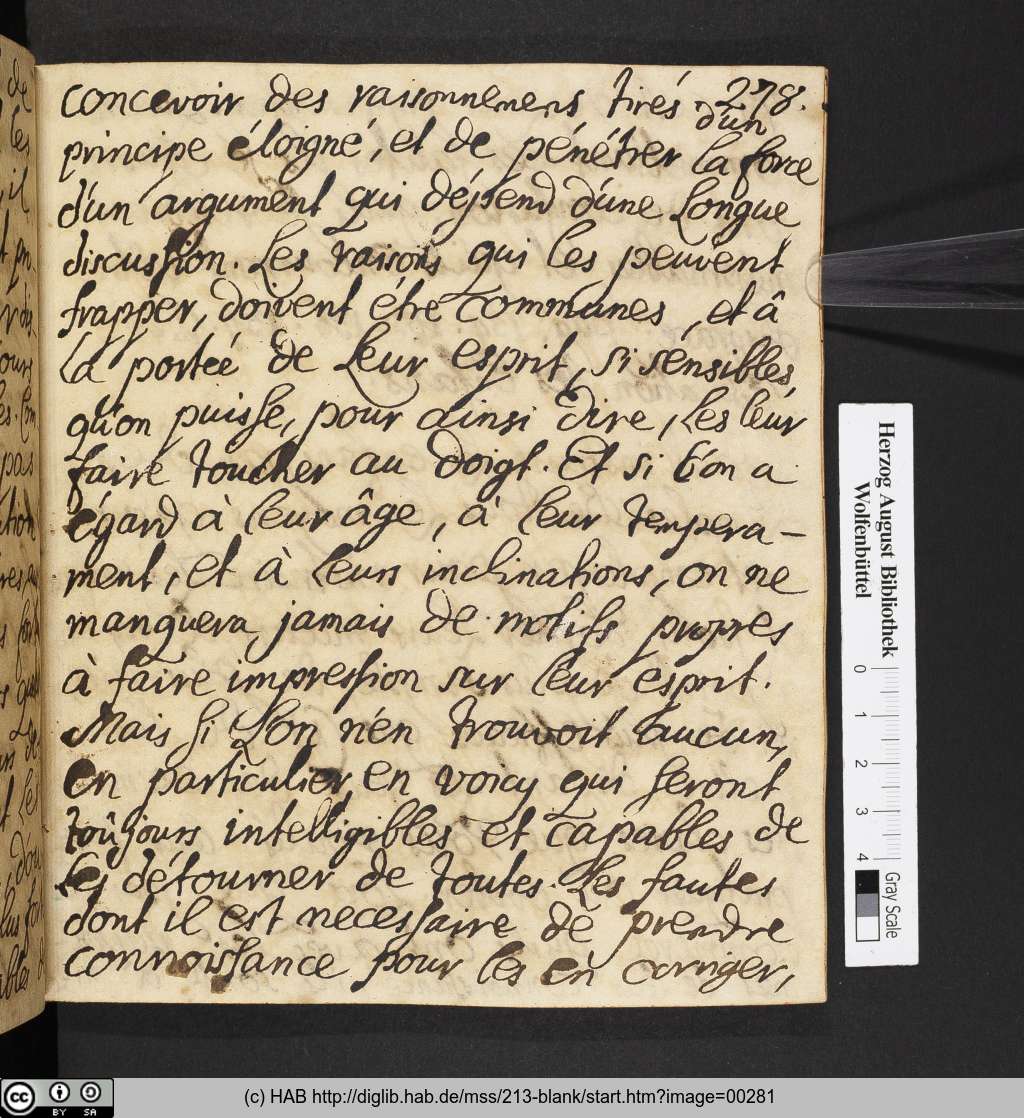 278.
concevoir des raisonnemens tirés d'un
principe éloigné, et de pénétrer la force
d'un argument qui dépend d'une longue
discussion. Les raisons qui les peuvent
frapper, doivent étre communes, et â
la porteé de leur esprit, si sensibles,
qu'on puisse, pour ainsi dire, les leur
faire toucher au doigt. Et si l'on a
égard à leur âge, à leur tempera-
ment, et à leurs inclinations, on ne
manquera jamais de motifs propres
à faire impression sur leur esprit.
Mais si L'on n'en trouvoit aucun,
en particulier, en voicy qui seront
toûjours intelligibles et capables de
les détourner de toutes. Les fautes
dont il est necessaire de prendre
connoissance pour les en corriger,
Herzog August Bibliothek
Wolfenbüttel
0 1 2 3 4
Gray Scale
cc BY SA
(c) HAB http://diglib.hab.de/mss/213-blank/start.htm?image=00281